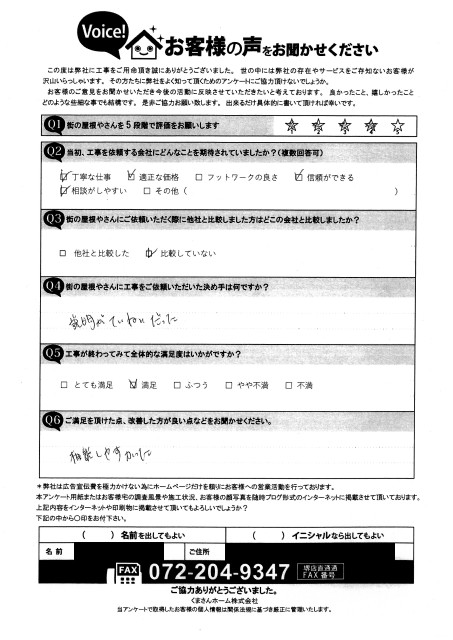 Voice!
お客様の声をお聞かせください
この度は弊社に工事をご用命頂き誠にありがとうございました。世の中には弊社の存在やサービスをご存知ないお客様が
沢山いらっしゃいます。その方たちに弊社をよく知って頂くためのアンケートにご協力頂けないでしょうか。
お客様のご意見をお聞かせいただき今後の活動に反映させていただきたいと考えております。良かったこと、嬉しかったこと
どのような些細な事でも結構です。是非ご協力お願い致します。出来るだけ具体的に書いて頂ければ幸いです。
Q1 街の屋根やさんを5段階で評価をお願いします ☆1 ☆2 ☆3 ☆4 ☆5
Q2 当初、工事を依頼する会社にどんなことを期待されていましたか?(複数回答可)
☑ 丁寧な仕事 ☑ 適正な価格 □ フットワークの良さ ☑ 信頼ができる
☑ 相談がしやすい □ その他( )
Q3 街の屋根やさんにご依頼いただく際に他社と比較しました方はどこの会社と比較しましたか?
□ 他社と比較した ☑ 比較していない
Q4 街の屋根やさんに工事をご依頼いただいた決め手は何ですか?
説明がていねいだった
Q5 工事が終わってみて全体的な満足度はいかがですか?
□ とても満足 ☑ 満足 □ ふつう □ やや不満 □ 不満
Q6 ご満足を頂けた点、改善した方が良い点などをお聞かせください。
相談しやすかった
＊弊社は広告宣伝費を極力かけない為にホームページだけを頼りにお客様への営業活動を行っております。
本アンケート用紙またはお客様宅の調査風景や施工状況、お客様の顔写真を随時ブログ形式のインターネットに掲載させて頂いております。
上記内容をインターネットや印刷物に掲載させて頂いてもよろしいでしょうか?
下記の中から〇印をお付下さい。
( )名前を出してもよい ( )イニシャルなら出してもよい
名前 ご住所
FAX 072-204-9347 堺店直通
FAX番号
ご協力ありがとうございました。
くまさんホーム株式会社
当アンケートで取得したお客様の個人情報は関係法規に基づき厳正に管理いたします。